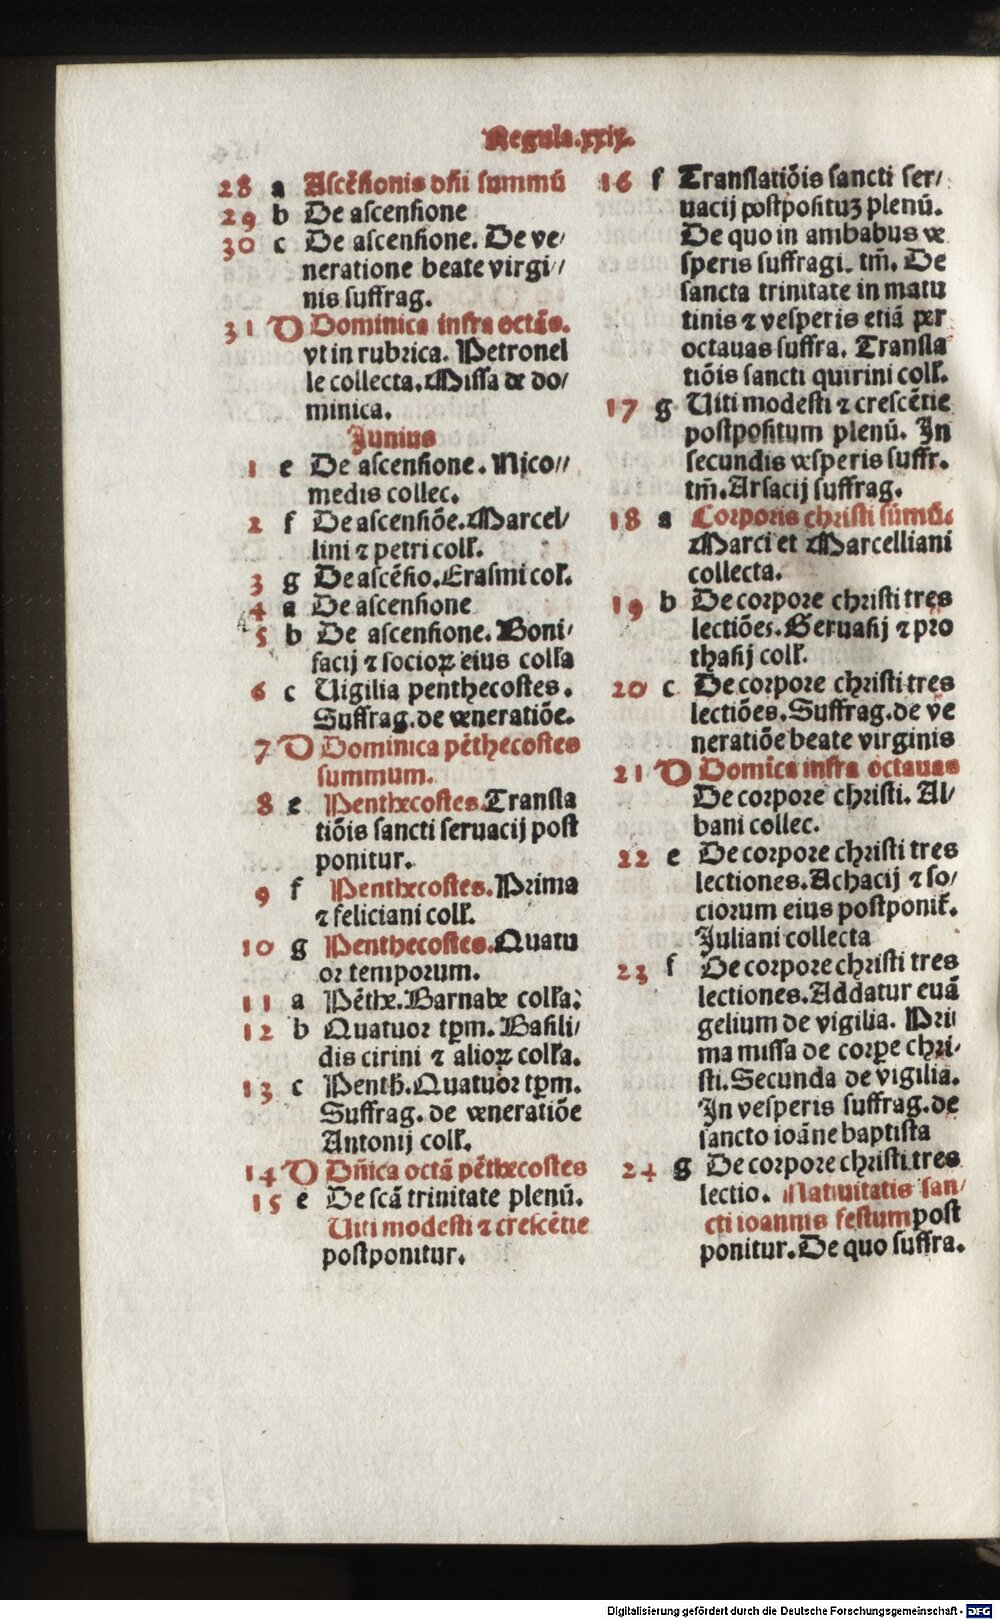 Regula.xxix.
28 a Ascẽsionis dñi summũ
29 b De ascensione
30 c De ascensione. De ve/
neratione beate virgi//
nis suffrag.
31 D Dominica infra octãs.
vt in rubrica. Petronel
le collecta. Missa de do/
minica.
Junius
1 e De ascensione. Nico//
medis collec.
2 f De ascensiõe. Marcel/
lini ⁊ petri coll̃.
3 g De ascẽsio. Erasmi col̃.
4 a De ascensione
5 b De ascensione. Boni/
facij ⁊ socioꝝ eius coll̃a
6 c Uigilia penthecostes.
Suffrag. de veneratiõe.
7 D Dominica pẽthecostes
summum.
8 e Penthecostes. Transla
tiõis sancti seruacij post
ponitur.
9 f Penthecostes. Prima
⁊ feliciani coll̃.
10 g Penthecostes. Quatu
or temporum.
11 a Pẽthe. Barnabe coll̃a:
12 b Quatuor tꝑm. Basili/
dis cirini ⁊ alioꝝ coll̃a.
13 c Penth̃. Quatuor tꝑm.
Suffrag. de veneratiõe
Antonij coll̃.
14 D Dñica octã pẽthecostes
15 e De scã trinitate plenũ.
Uiti modesti ⁊ crescẽtie
postponitur.
16 f Translatiõis sancti ser/
uacij postposituꝫ plenũ.
De quo in ambabus ve
speris suffragi. tm̃. De
sancta trinitate in matu
tinis ⁊ vesperis etiã per
octauas suffra. Transla
tiõis sancti quirini coll̃.
17 g Uiti modesti ⁊ crescẽtie
postpositum plenũ. In
secundis vesperis suffr.
tm̃. Arsacij suffrag.
18 a Corporis christi sũmũ.
Marci et Marcelliani
collecta.
19 b De corpore christi tres
lectiões. Geruasij ⁊ pro
thasij coll̃.
20 c De corpore christi tres
lectiões. Suffrag. de ve
neratiõe beate virginis
21 D Domĩca infra octauas
De corpore christi. Al/
bani collec.
22 e De corpore christi tres
lectiones. Achacij ⁊ so/
ciorum eius postponit̃.
Juliani collecta
23 f De corpore christi tres
lectiones. Addatur euã
gelium de vigilia. Pri
ma missa de corpe chri/
sti. Secunda de vigilia.
In vesperis suffrag. de
sancto ioãne baptista
24 g De corpore christi tres
lectio. Natiuitatis san/
cti ioannis festum post
ponitur. De quo suffra.
Digitalisierung gefördert durch die Deutsche Forschungsgemeinschaft - DFG